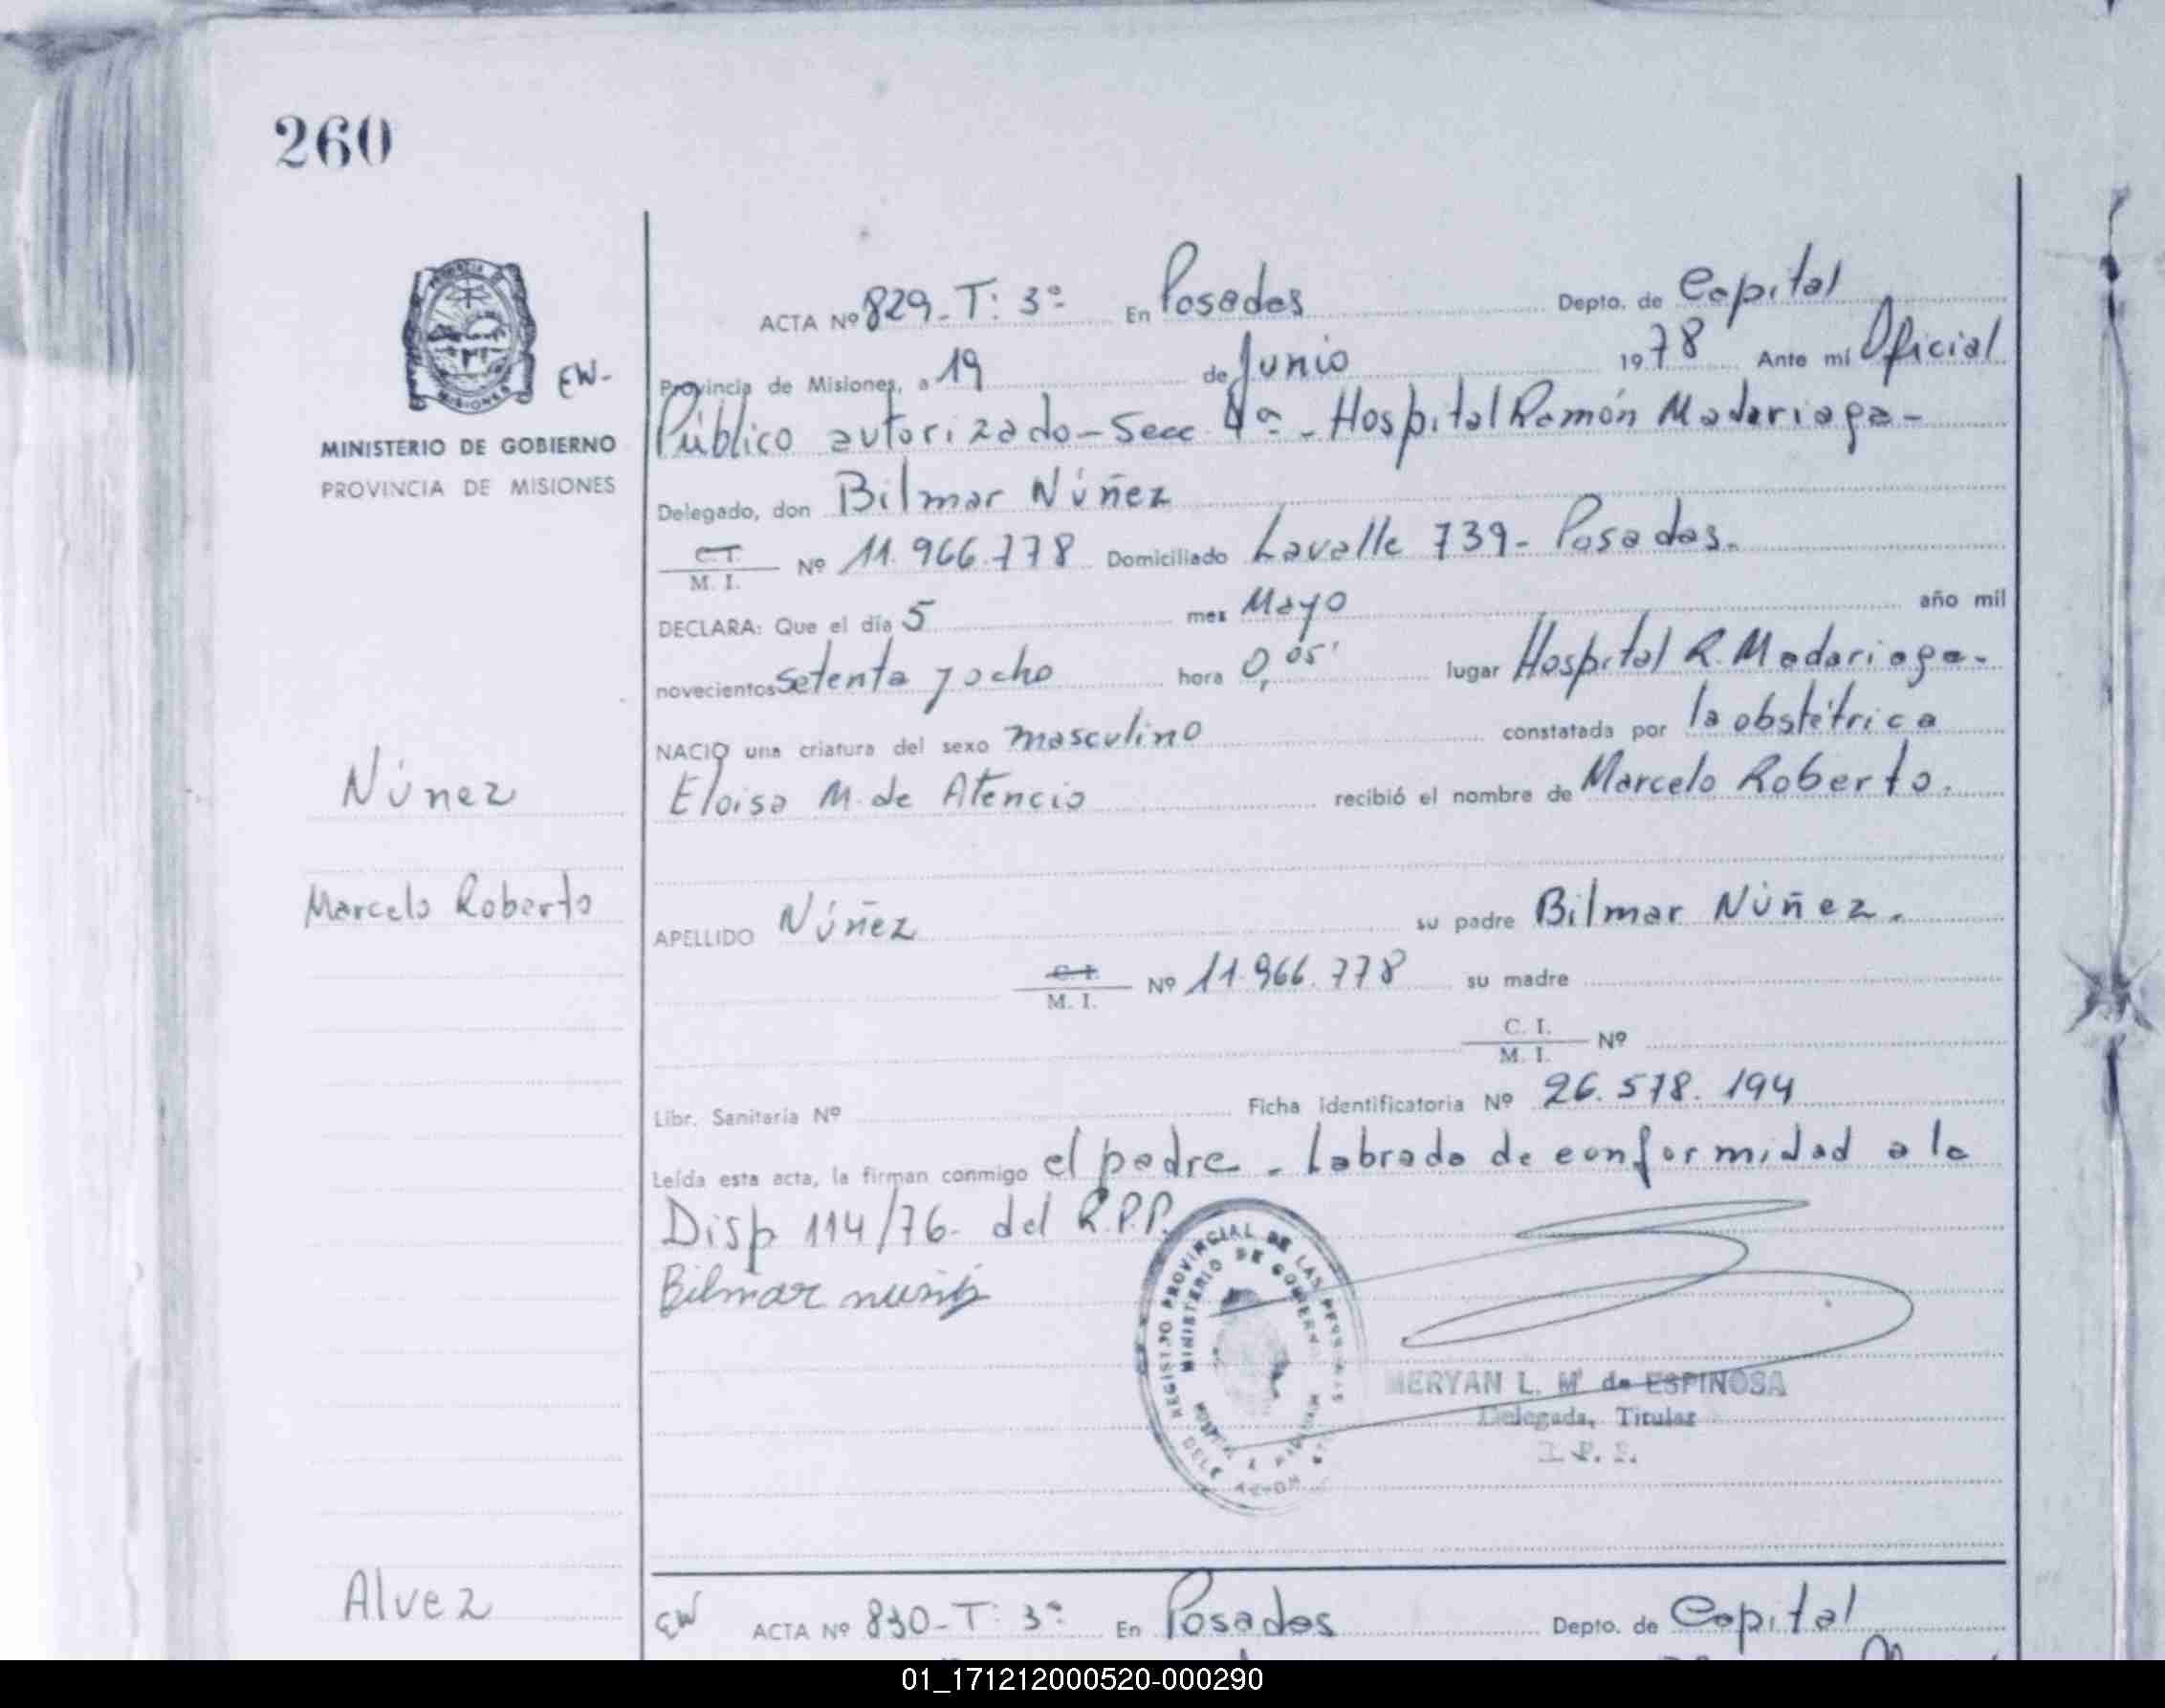 260
EW-
MINISTERIO DE GOBIERNO
PROVINCIA DE MISIONES
ACTA Nº 829-T: 3º En Posadas Depto. de Capital
Provincia de Misiones, a 19 de Junio 1978 Ante mí Oficial
Público autorizado - Secc. 4ª - Hospital Ramón Madariaga -
Delegado, don Bilmar Núñez
C.I. M. I. Nº 11.966.778 Domiciliado Lavalle 739 - Posadas.
DECLARA: Que el día 5 mes Mayo año mil
novecientos setenta y ocho hora 0,05' lugar Hospital R. Madariaga -
NACIO una criatura del sexo masculino constatada por la obstétrica
Núnez
Eloisa M. de Atencio recibió el nombre de Marcelo Roberto.
Marcelo Roberto
APELLIDO Núñez su padre Bilmar Núñez.
C. I. M. I. Nº 11.966.778 su madre
C. I. M. I. Nº
Libr. Sanitaria Nº Ficha identificatoria Nº 26.578.194
Leída esta acta, la firman conmigo el padre - Labrada de conformidad a la
Disp 114/76 - del R.P.P.
Bilmar
REGISTRO PROVINCIAL DE LAS PERSONAS
MINISTERIO DE GOBIERNO
MERYAN L. M. de ESPINOSA
Delegada, Titular
Alvez
EW ACTA Nº 830-T: 3º En Posadas Depto. de Capital
01_171212000520-000290